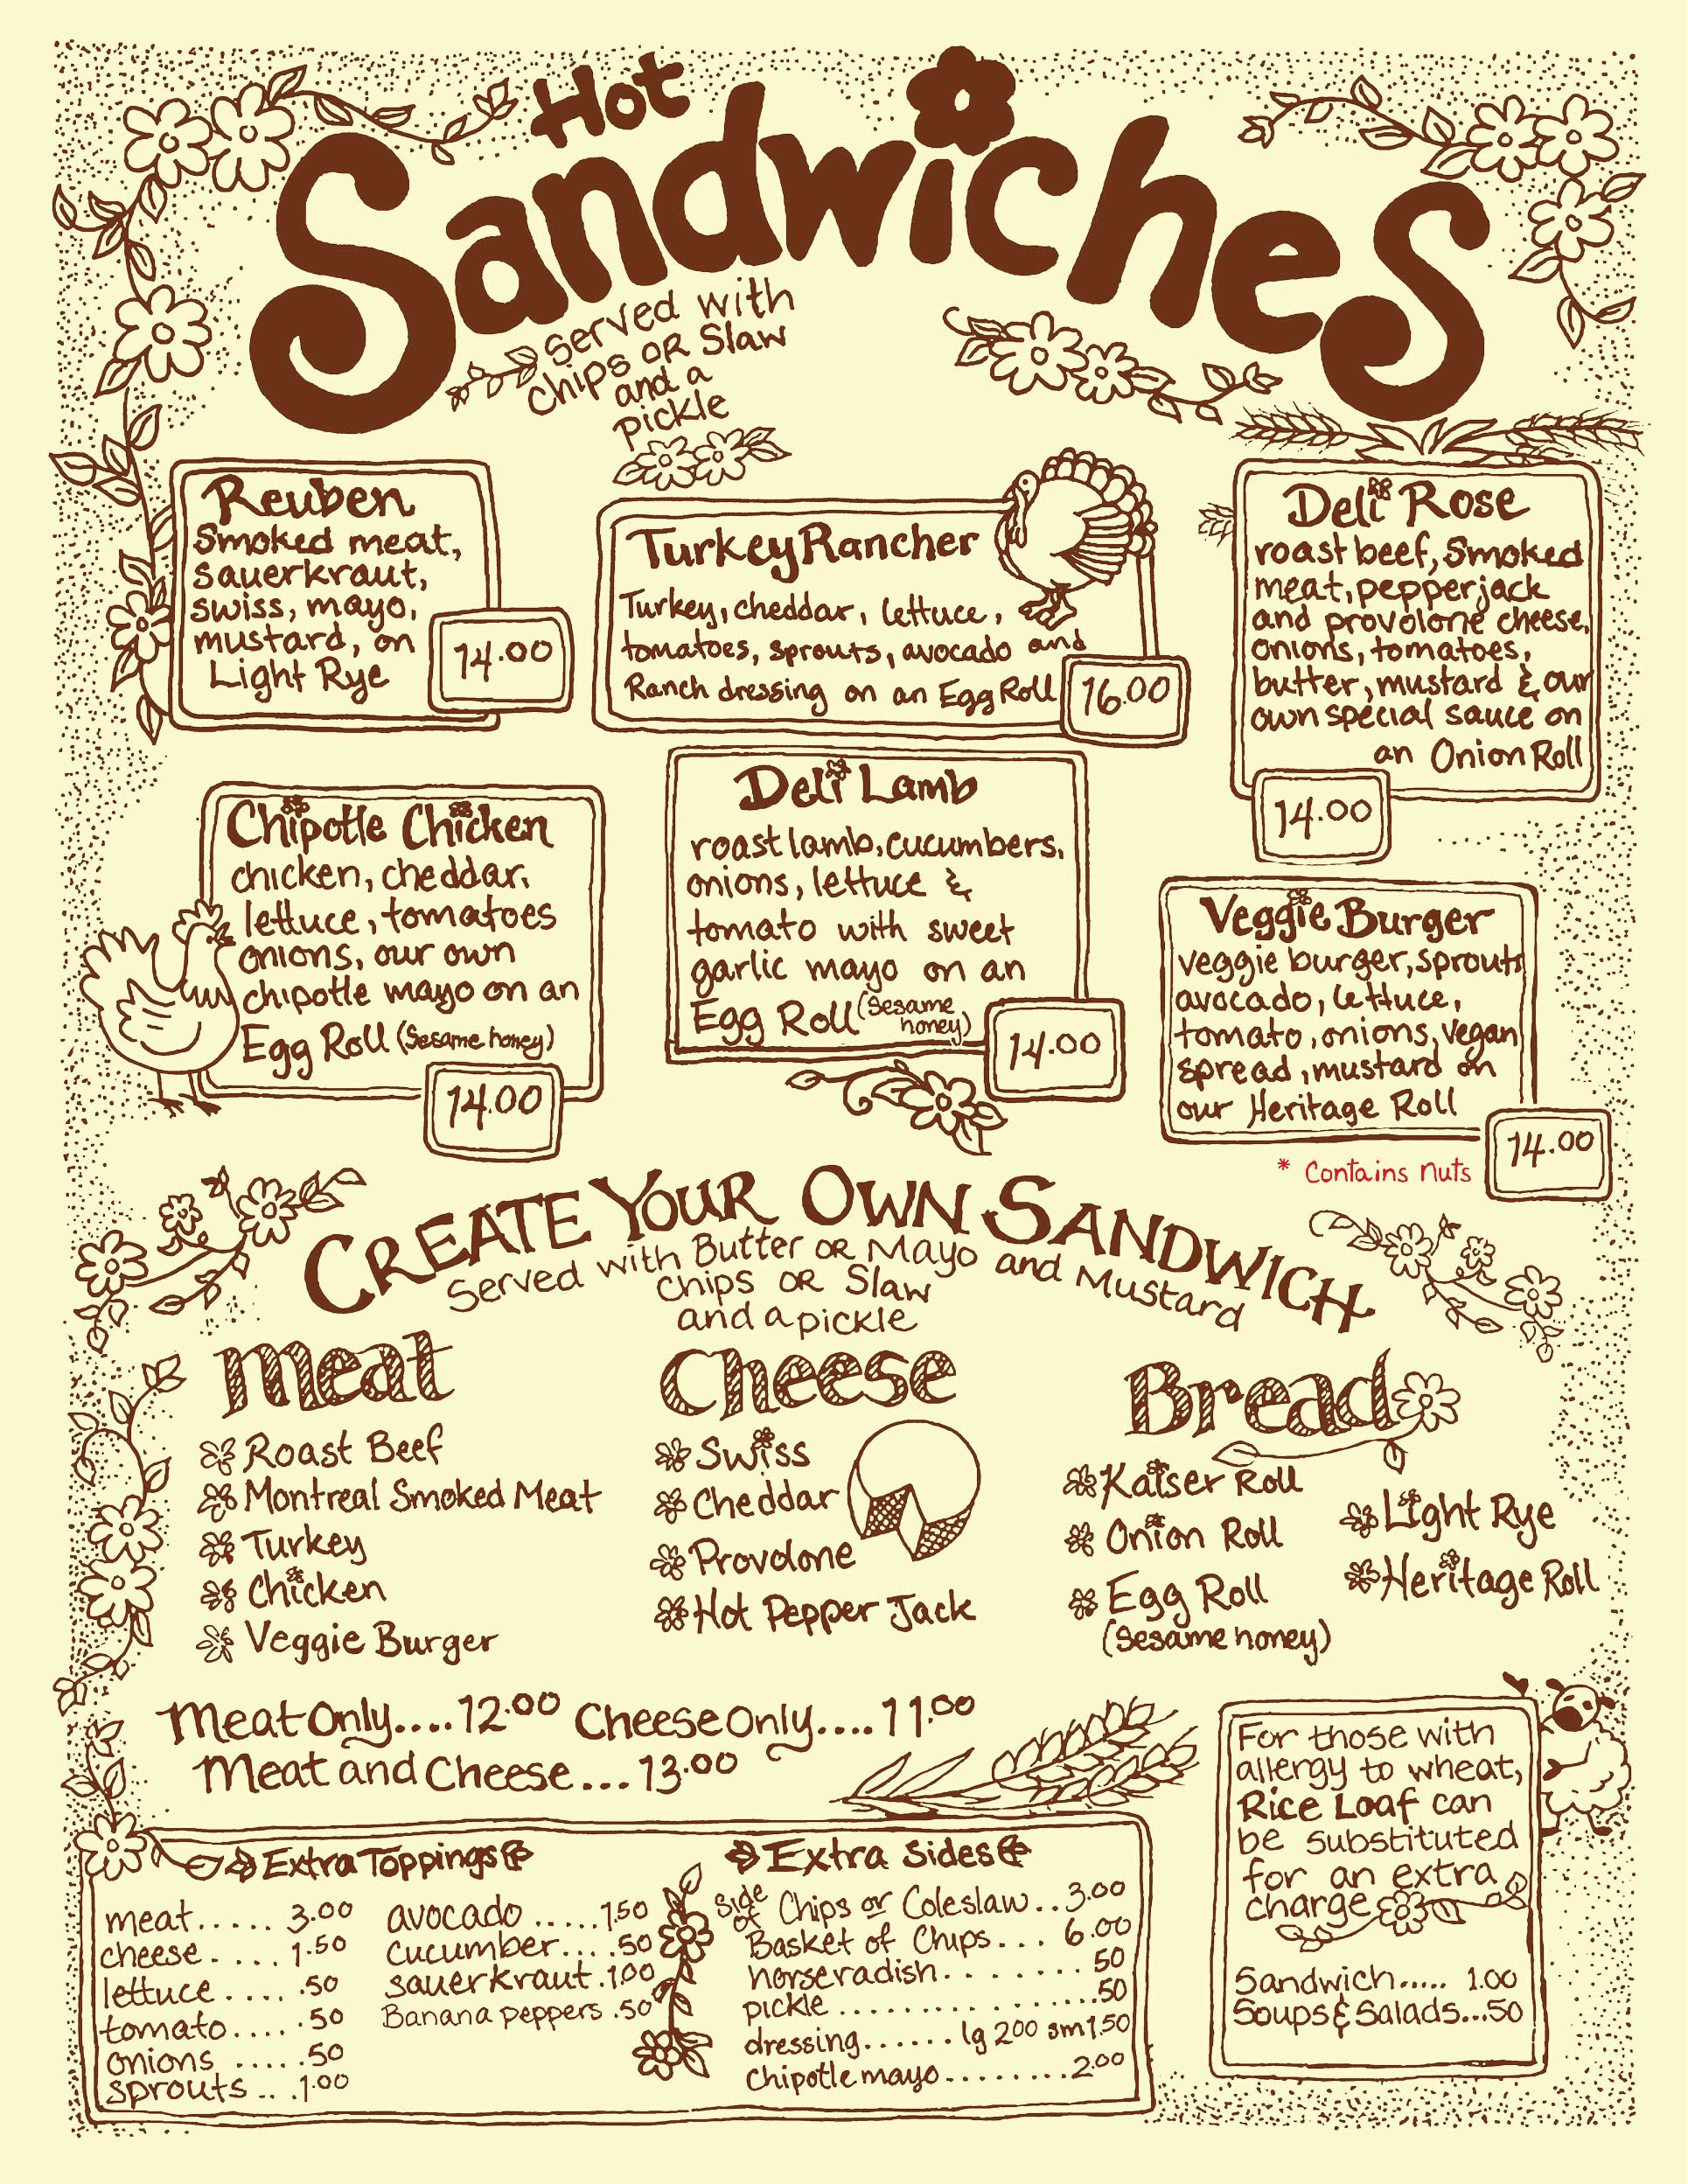 Hot
Sandwiches
served with
chips OR Slaw
and a
pickle
Reuben
Smoked meat,
sauerkraut,
swiss, mayo,
mustard, on
Light Rye
14.00
Turkey Rancher
Turkey, cheddar, lettuce,
tomatoes, sprouts, avocado and
Ranch dressing on an Egg Roll
16.00
Deli Rose
roast beef, Smoked
meat, pepperjack
and provolone cheese,
onions, tomatoes,
butter, mustard & our
own special sauce on
an Onion Roll
14.00
Chipotle Chicken
chicken, cheddar,
lettuce, tomatoes
onions, our own
chipotle mayo on an
Egg Roll (Sesame honey)
14.00
Deli Lamb
roast lamb, cucumbers,
onions, lettuce &
tomato with sweet
garlic mayo on an
Egg Roll (Sesame
honey)
14.00
Veggie Burger
veggie burger, sprouts
avocado, lettuce,
tomato, onions, vegan
spread, mustard on
our Heritage Roll
14.00
* Contains nuts
CREATE YOUR OWN SANDWICH
Served with Butter OR Mayo and Mustard
Chips OR Slaw
and a pickle
Meat
Roast Beef
Montreal Smoked Meat
Turkey
Chicken
Veggie Burger
Cheese
Swiss
Cheddar
Provolone
Hot Pepper Jack
Bread
Kaiser Roll
Onion Roll
Egg Roll
(Sesame honey)
Light Rye
Heritage Roll
Meat Only....12.00 Cheese Only....11.00
Meat and Cheese...13.00
Extra Toppings
meat..... 3.00
cheese..... 1.50
lettuce.... .50
tomato.... .50
onions .... .50
sprouts... 1.00
avocado .....1.50
cucumber.... .50
sauerkraut .1.00
Banana peppers .50
Extra Sides
Side of Chips or Coleslaw..3.00
Basket of Chips... 6.00
horseradish........ 50
pickle .................50
dressing....... lg 2.00 sm 1.50
Chipotle mayo........2.00
For those with
allergy to wheat,
Rice Loaf can
be substituted
for an extra
charge
Sandwich..... 1.00
Soups & Salads...50